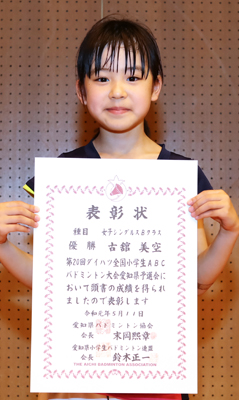 表彰状
種目 女子シングルスBクラス
優勝 古舘 美空
第20回ダイハツ全国小学生ABC
バドミントン大会愛知県予選会に
おいて頭書の成績を得られ
ましたので表彰します
令和元年5月11日
愛知県バドミントン協会
会長 末岡熙章
愛知県小学生バドミントン連盟
会長 鈴木正一
THE AICHI BADMINTON ASSOCIATION